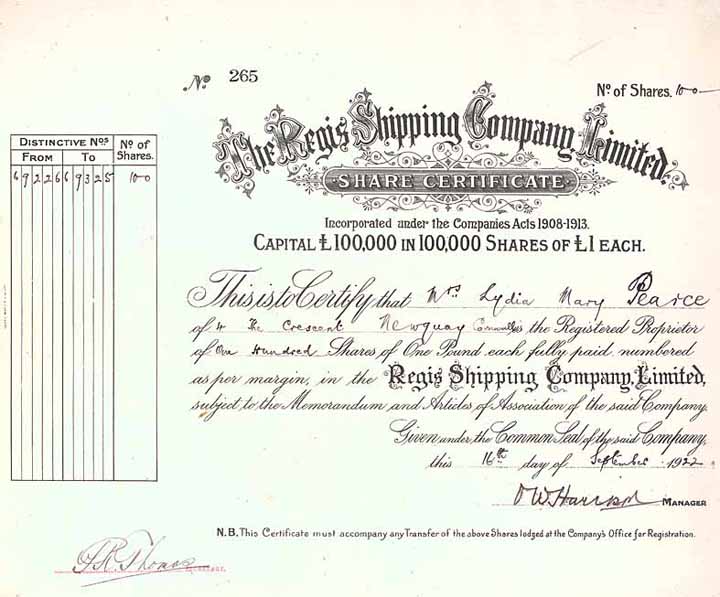 No 265
No of Shares. 100
The Regis Shipping Company, Limited.
SHARE CERTIFICATE
Incorporated under the Companies Acts 1908-1913.
CAPITAL £100,000 IN 100,000 SHARES OF £1 EACH.
DISTINCTIVE Nos No of Shares.
FROM TO
69226 69325 100
This is to Certify that Mrs Lydia Mary Pearce
of 4 The Crescent Newquay Cornwall is the Registered Proprietor
of One Hundred Shares of One Pound each fully paid numbered
as per margin, in the Regis Shipping Company, Limited,
subject to the Memorandum and Articles of Association of the said Company.
Given under the Common Seal of the said Company,
this 16th day of September 1922
MANAGER
N.B. This Certificate must accompany any Transfer of the above Shares lodged at the Company's Office for Registration.
Thomas